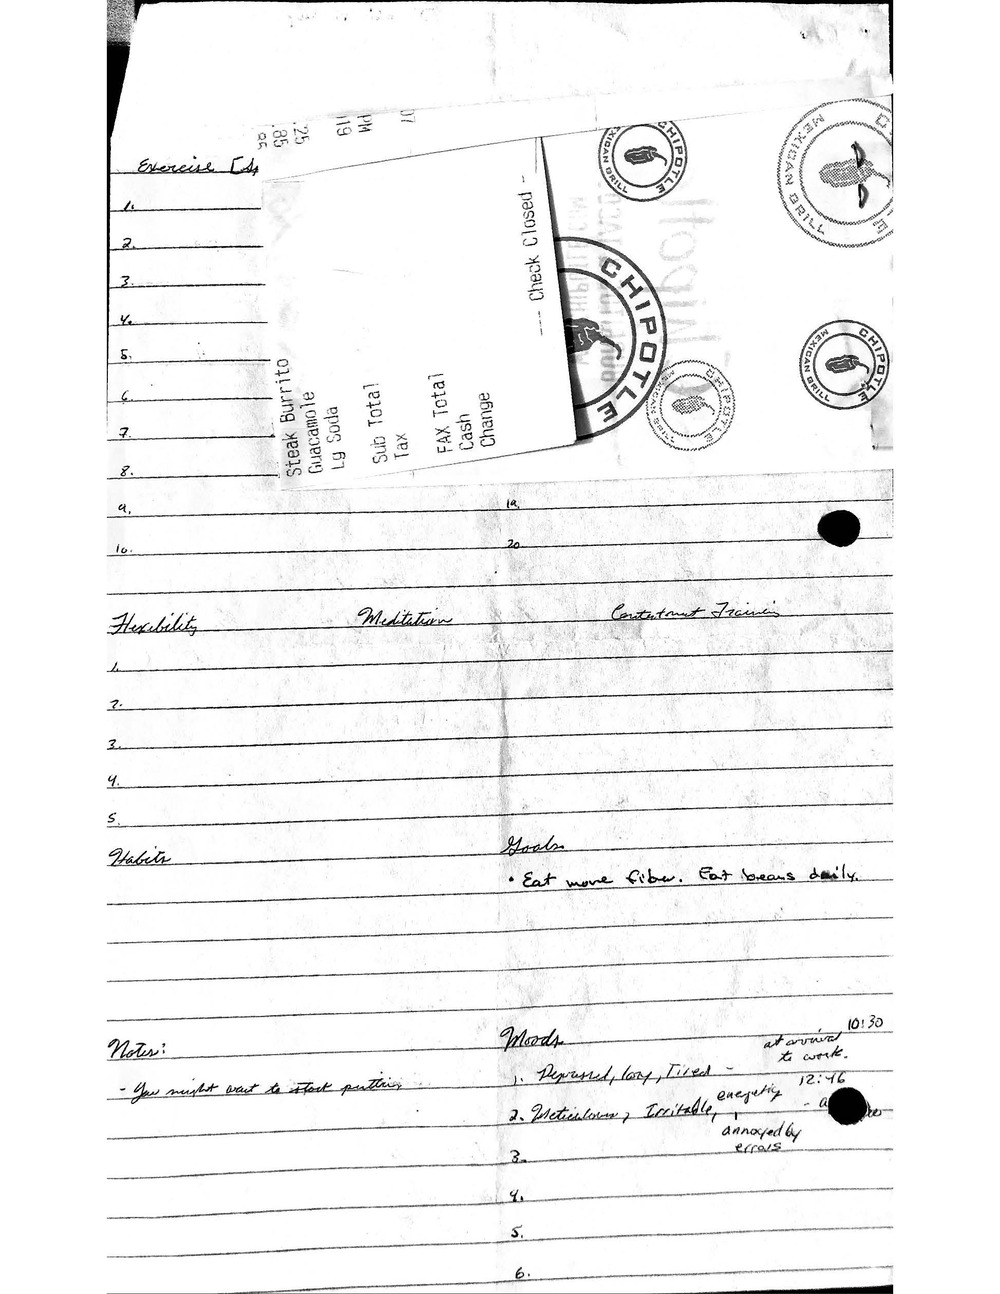 07
PM
19
.25
.85
Exercise
1.
2.
3.
4.
5.
6.
7.
8.
9.
10.
Steak Burrito
Guacamole
Lg Soda
Sub Total
Tax
FAX Total
Cash
Change
--- Check Closed -
CHIPOTLE
MEXICAN GRILL
CHIPOTLE
MEXICAN GRILL
CHIPOTLE
CHIPOTLE
MEXICAN GRILL
CHIPOTLE
MEXICAN GRILL
19.
20
Flexibility Meditation Contentment Training
1.
2.
3.
4.
5.
Habits
Goals
• Eat more fiber. Eat beans daily.
Notes:
- You might want to start putting
Moods
10:30
at arrival
to work.
1. Depressed, lazy, Tired -
12:46
2. Meticulous, Irritable, energetic
annoyed by
errors
3.
4.
5.
6.